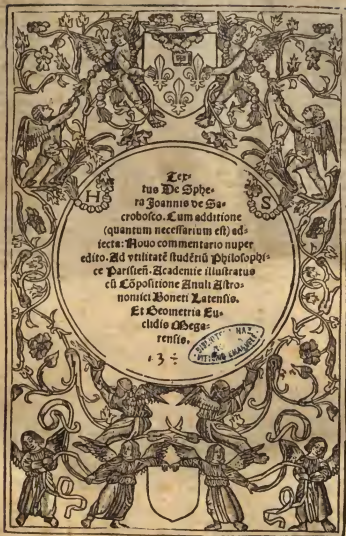 H S
Tex-
tus De Sphe-
ra Joannis de Sa-
crobosco. Cum additione
(quantum necessarium est) ad-
iecta: Nouo commentario nuper
edito. Ad vtilitatẽ studẽtiũ Philosophi-
ce Parisieñ. Academie illustratus
cũ Cõpositione Anuli Astro-
nomici Boneti Latensis.
Et Geometria Eu-
clidis Megа-
rensis.
BIBLIOTECA NAZ.
VITTORIO EMANUELE